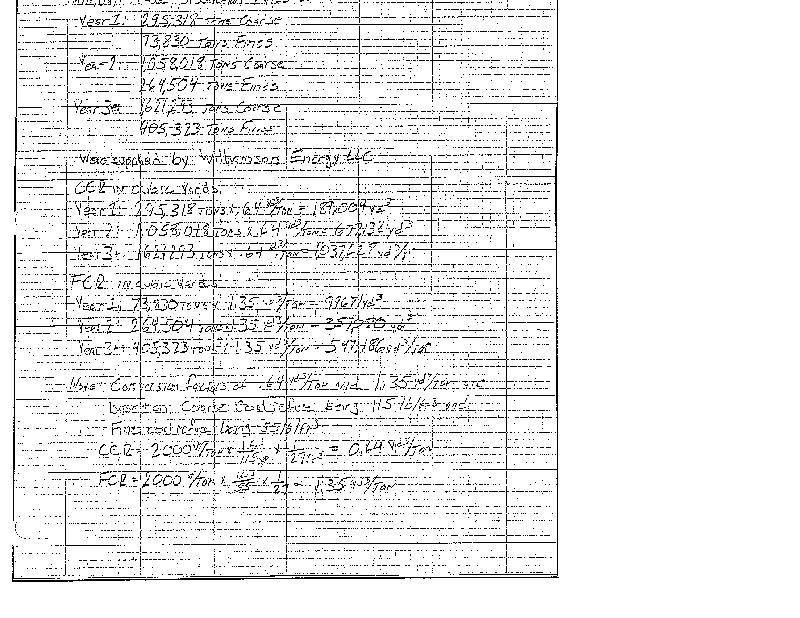 Year 1: 295,318 Tons Coarse
73,830 Tons Fines
Year 2: 1,058,018 Tons Coarse
264,504 Tons Fines
Year 3+: 1,621,293 Tons Coarse
405,323 Tons Fines
supplied by Williamson Energy LLC
CCR in Cubic Yards
Year 1: 295,318 Tons x .64 yd³/Ton = 189,004 yd³
Year 2: 1,058,018 Tons x .64 yd³/Ton = 677,131 yd³
Year 3+: 1,621,293 Tons x .64 yd³/Ton = 1,037,628 yd³/yr
FCR in Cubic Yards
Year 1: 73,830 Tons x 1.35 yd³/Ton = 99671 yd³
Year 2: 264,504 Tons x 1.35 yd³/Ton = 357,080 yd³
Year 3+: 405,323 Tons x 1.35 yd³/Ton = 547,186 yd³/yr
Note: Conversion factors of .64 yd³/Ton and 1.35 yd³/Ton are
based on Coarse Coal refuse being 115 lb/ft³ and
Fine coal refuse being 55 lb/ft³
CCR = 2000 #/Ton x 1/115 x 1/27 = 0.64 yd³/Ton
FCR = 2000 #/Ton x 1/55 x 1/27 = 1.35 yd³/Ton